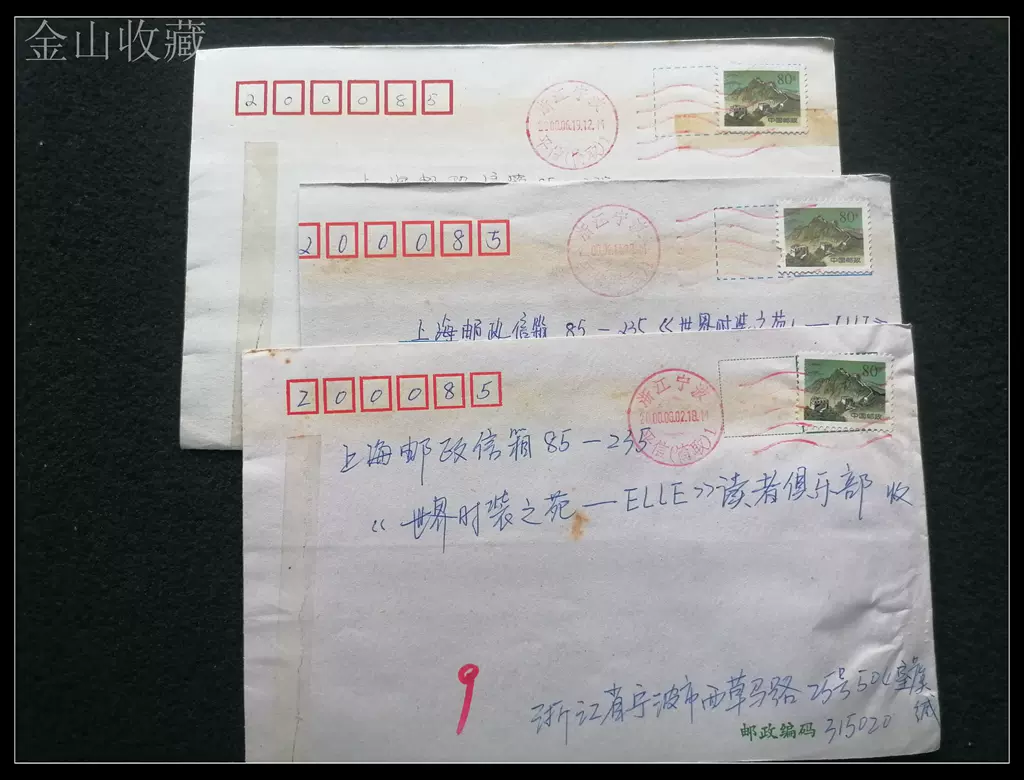 金山收藏
200085
浙江宁波
2000.06.19.12.
平信(筒取)1
80分
中国邮政
上海邮政信箱85
200085
浙江宁波
80分
中国邮政
上海邮政信箱 85-235《世界时装之苑-
200085
浙江宁波
2000.06.02.18.
平信(筒取)1
80分
中国邮政
上海邮政信箱 85-235
《世界时装之苑-ELLE》读者俱乐部 收
9
浙江省宁波市西草马路25号50
邮政编码 315020